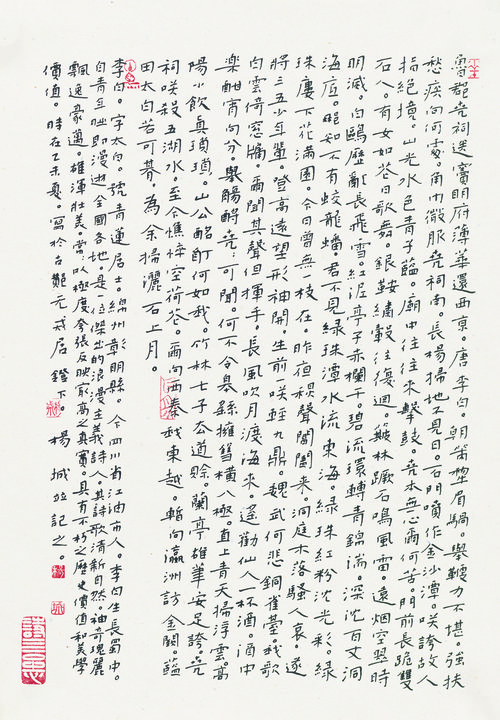 魯郡堯祠送竇明府薄華還西京。唐李白。朝策犁眉騧。舉鞭力不堪。強扶
愁疾向何處。角巾微服堯祠南。長楊掃地不見日。石門噴作金沙潭。咲誇故人
指絕境。山光水色青于藍。廟中往往來擊鼓。堯本無心爾何苦。門前長跪雙
石人。有女如花日歌舞。銀鞍繡轂往復迴。簸林蹶石鳴風雷。遠烟空翠時
明滅。白鷗歷亂長飛雪。紅泥亭子赤欄干。碧流環轉青錦湍。深沈百丈洞
海底。那知不有蛟龍蟠。君不見綠珠潭水流東海。綠珠紅粉沈光彩。綠
珠樓下花滿園。今日曾無一枝在。昨夜秋聲閶闔來。洞庭木落騷人哀。遂
將三五少年輩。登高遠望形神開。生前一咲輕九鼎。魏武何悲銅雀臺。我歌
白雲倚窓牖。爾聞其聲但揮手。長風吹月渡海來。遙勸仙人一杯酒。酒中
樂酣宵向分。舉觴酹堯堯可聞。何不令皋繇擁篲橫八極。直上青天掃浮雲。高
陽小飲真瑣瑣。山公酩酊何如我。竹林七子去道賒。蘭亭雄筆安足誇。堯
祠咲殺五湖水。至今憔悴空荷花。爾向西秦我東越。暫向瀛洲訪金闕。藍
田太白若可期。為余掃灑石上月。
李白。字太白。號青蓮居士。綿州彰明縣。今四川省江油市人。李白生長蜀中。
自青年時即漫遊全國各地。是一位傑出的浪漫主義詩人。其詩歌清新自然。神奇瑰麗
飄逸豪邁。雄渾壯美。常以極度夸張反映最高之真實。具有不朽之歷史價值和美學
價值。時在乙未夏。寫於古艷元戎居鐙下。楊城並記之。